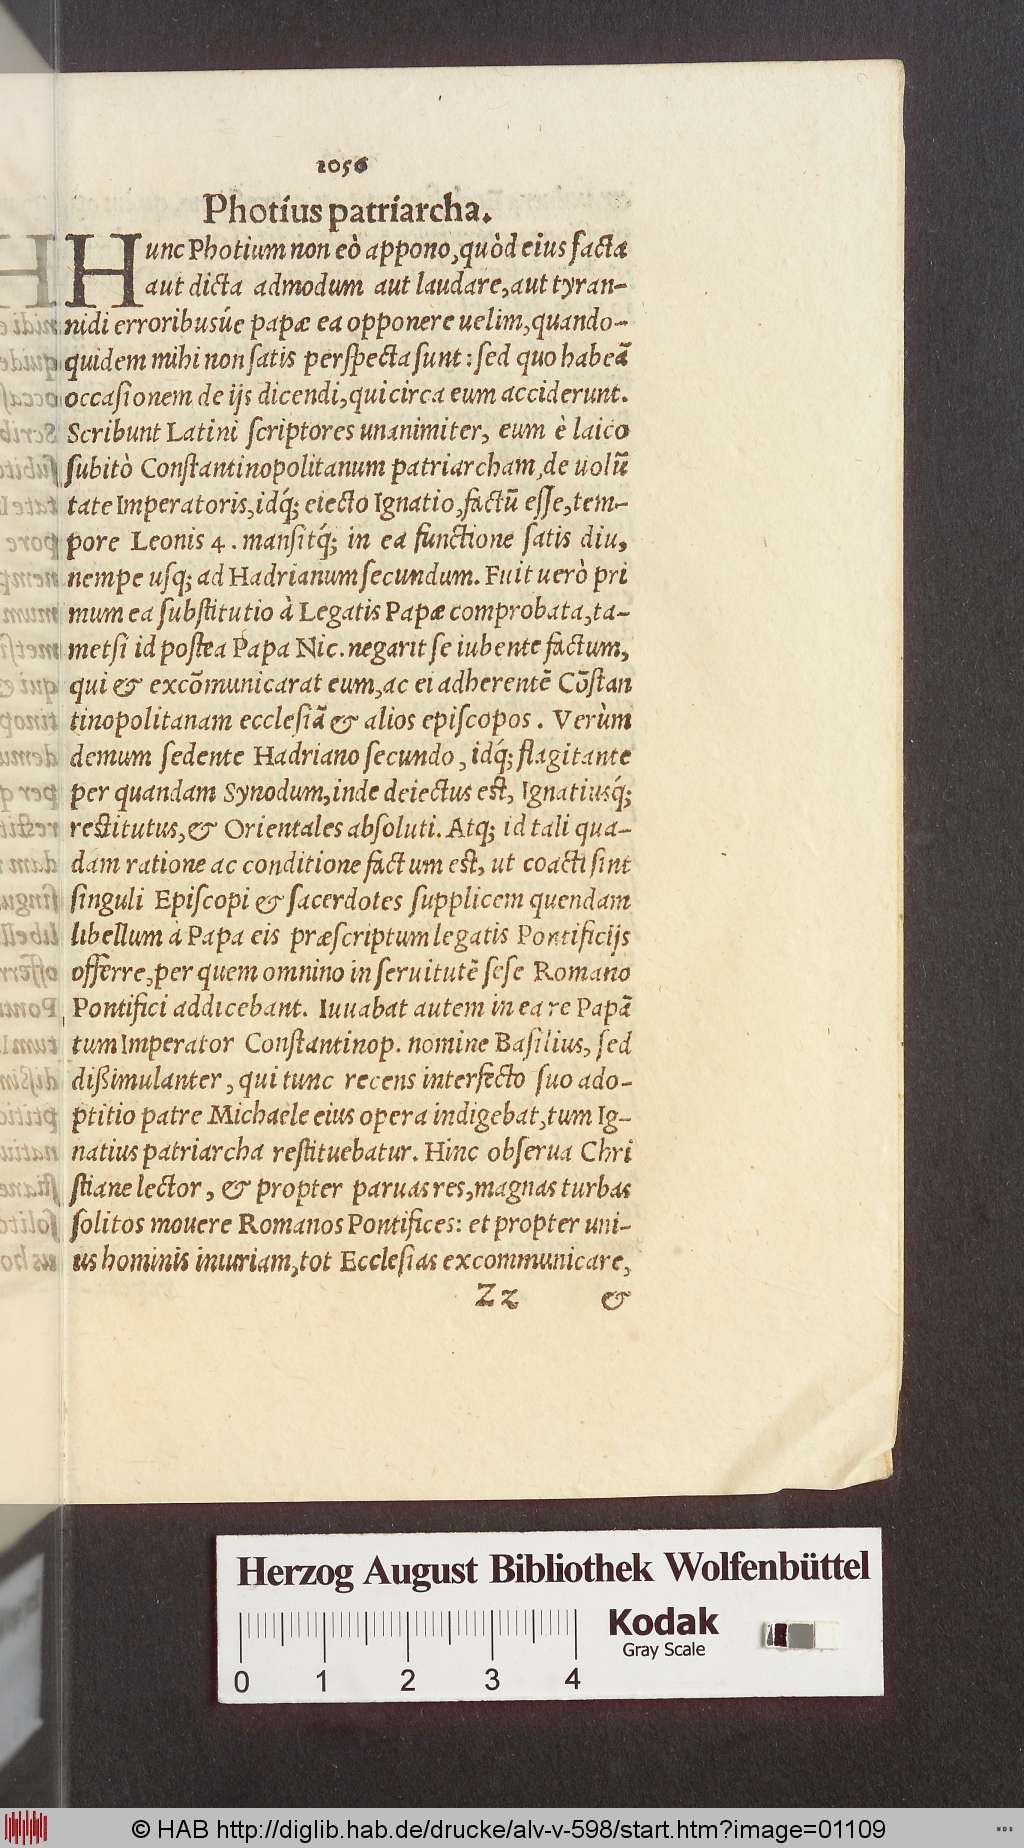 1056
Photius patriarcha.
Hunc Photium non eò appono, quòd eius facta
aut dicta admodum aut laudare, aut tyran-
nidi erroribusúe papæ ea opponere uelim, quando-
quidem mihi non satis perspecta sunt: sed quo habeã
occasionem de ijs dicendi, qui circa eum acciderunt.
Scribunt Latini scriptores unanimiter, eum è laico
subitò Constantinopolitanum patriarcham, de uolũ
tate Imperatoris, idq́; eiecto Ignatio, factũ esse, tem-
pore Leonis 4. mansitq́; in ea functione satis diu,
nempe usq; ad Hadrianum secundum. Fuit uerò pri
mum ea substitutio à Legatis Papæ comprobata, ta-
metsi id postea Papa Nic. negarit se iubente factum,
qui & excõmunicarat eum, ac ei adherentẽ Cõstan
tinopolitanam ecclesiã & alios episcopos. Verùm
demum sedente Hadriano secundo, idq́; flagitante
per quandam Synodum, inde deiectus est, Ignatiusq́;
restitutus, & Orientales absoluti. Atq; id tali qua-
dam ratione ac conditione factum est, ut coacti sint
singuli Episcopi & sacerdotes supplicem quendam
libellum à Papa eis præscriptum legatis Pontificijs
offerre, per quem omnino in seruitutẽ sese Romano
Pontifici addicebant. Iuuabat autem in ea re Papã
tum Imperator Constantinop. nomine Basilius, sed
dißimulanter, qui tunc recens interfecto suo ado-
ptitio patre Michaele eius opera indigebat, tum Ig-
natius patriarcha restituebatur. Hinc obserua Chri
stiane lector, & propter paruas res, magnas turbas
solitos mouere Romanos Pontifices: et propter uni-
us hominis iniuriam, tot Ecclesias excommunicare,
Zz &
Herzog August Bibliothek Wolfenbüttel
Kodak
Gray Scale
0 1 2 3 4
© HAB http://diglib.hab.de/drucke/alv-v-598/start.htm?image=01109